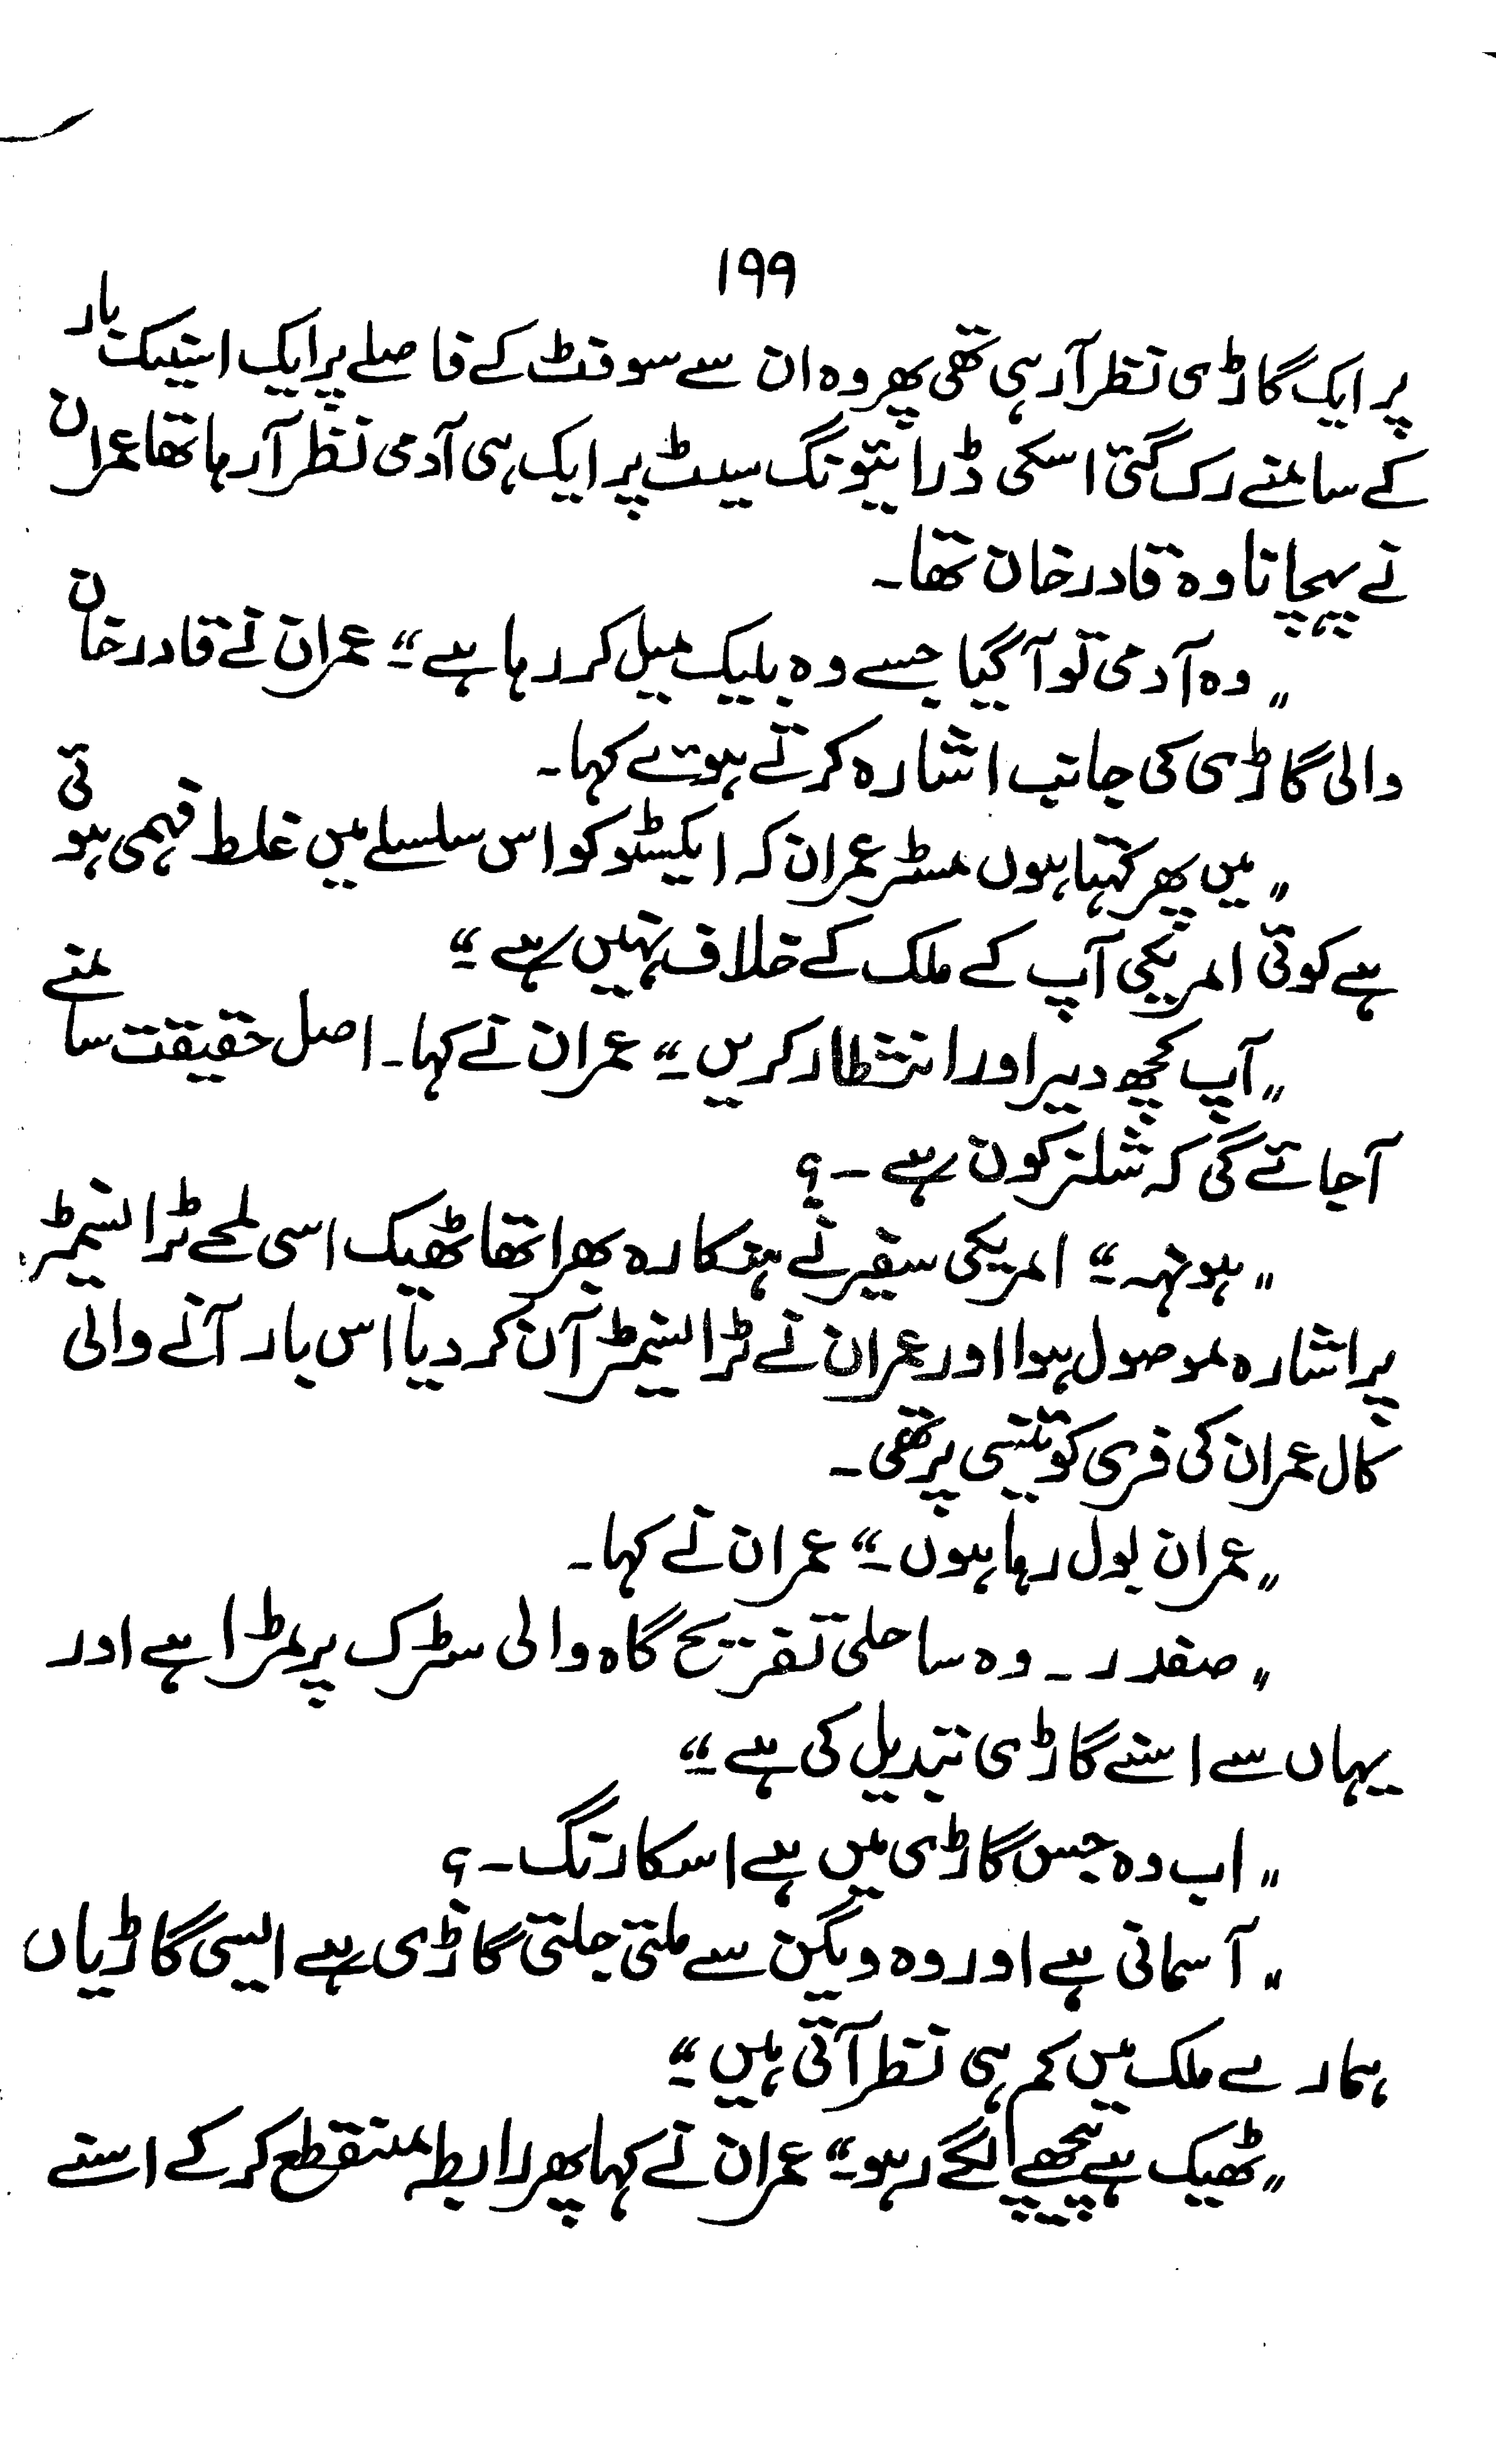 ۱۹۹
پر ایک گاڑی نظر آرہی تھی پھر وہ ان سے سو فٹ کے فاصلے پر ایک اسنیک بار
کے سامنے رک گئی اسکی ڈرائیونگ سیٹ پر ایک ہی آدمی نظر آرہا تھا عمران
نے پہچانا وہ قادر خان تھا۔
"وہ آدمی تو آگیا جسے وہ بلیک میل کر رہا ہے۔" عمران نے قادر خان
والی گاڑی کی جانب اشارہ کرتے ہوئے کہا۔
"میں پھر کہتا ہوں مسٹر عمران کہ ایکسٹو کو اس سلسلے میں غلط فہمی ہوئی
ہے کوئی امریکی آپ کے ملک کے خلاف نہیں ہے۔"
"آپ کچھ دیر اور انتظار کریں۔" عمران نے کہا۔ اصل حقیقت سامنے
آجائے گی کہ شلز کون ہے ۔؟
"ہونہہ۔" امریکی سفیر نے ہنکارہ بھرا تھا ٹھیک اسی لمحے ٹرانسمیٹر
پر اشارہ موصول ہوا اور عمران نے ٹرانسمیٹر آن کر دیا اس بار آنے والی
کال عمران کی فریکوئنسی پر تھی۔
"عمران بول رہا ہوں۔" عمران نے کہا۔
"صفدر ۔ وہ ساحلی تفریح گاہ والی سڑک پر مڑا ہے اور
یہاں سے اسنے گاڑی تبدیل کی ہے۔"
"اب وہ جس گاڑی میں ہے اسکا رنگ ۔؟
"آسمانی ہے اور وہ ویگن سے ملتی جلتی گاڑی ہے ایسی گاڑیاں
ہمارے ملک میں کم ہی نظر آتی ہیں۔"
"ٹھیک ہے پیچھے لگے رہو۔" عمران نے کہا پھر رابطہ منقطع کر کے اسنے